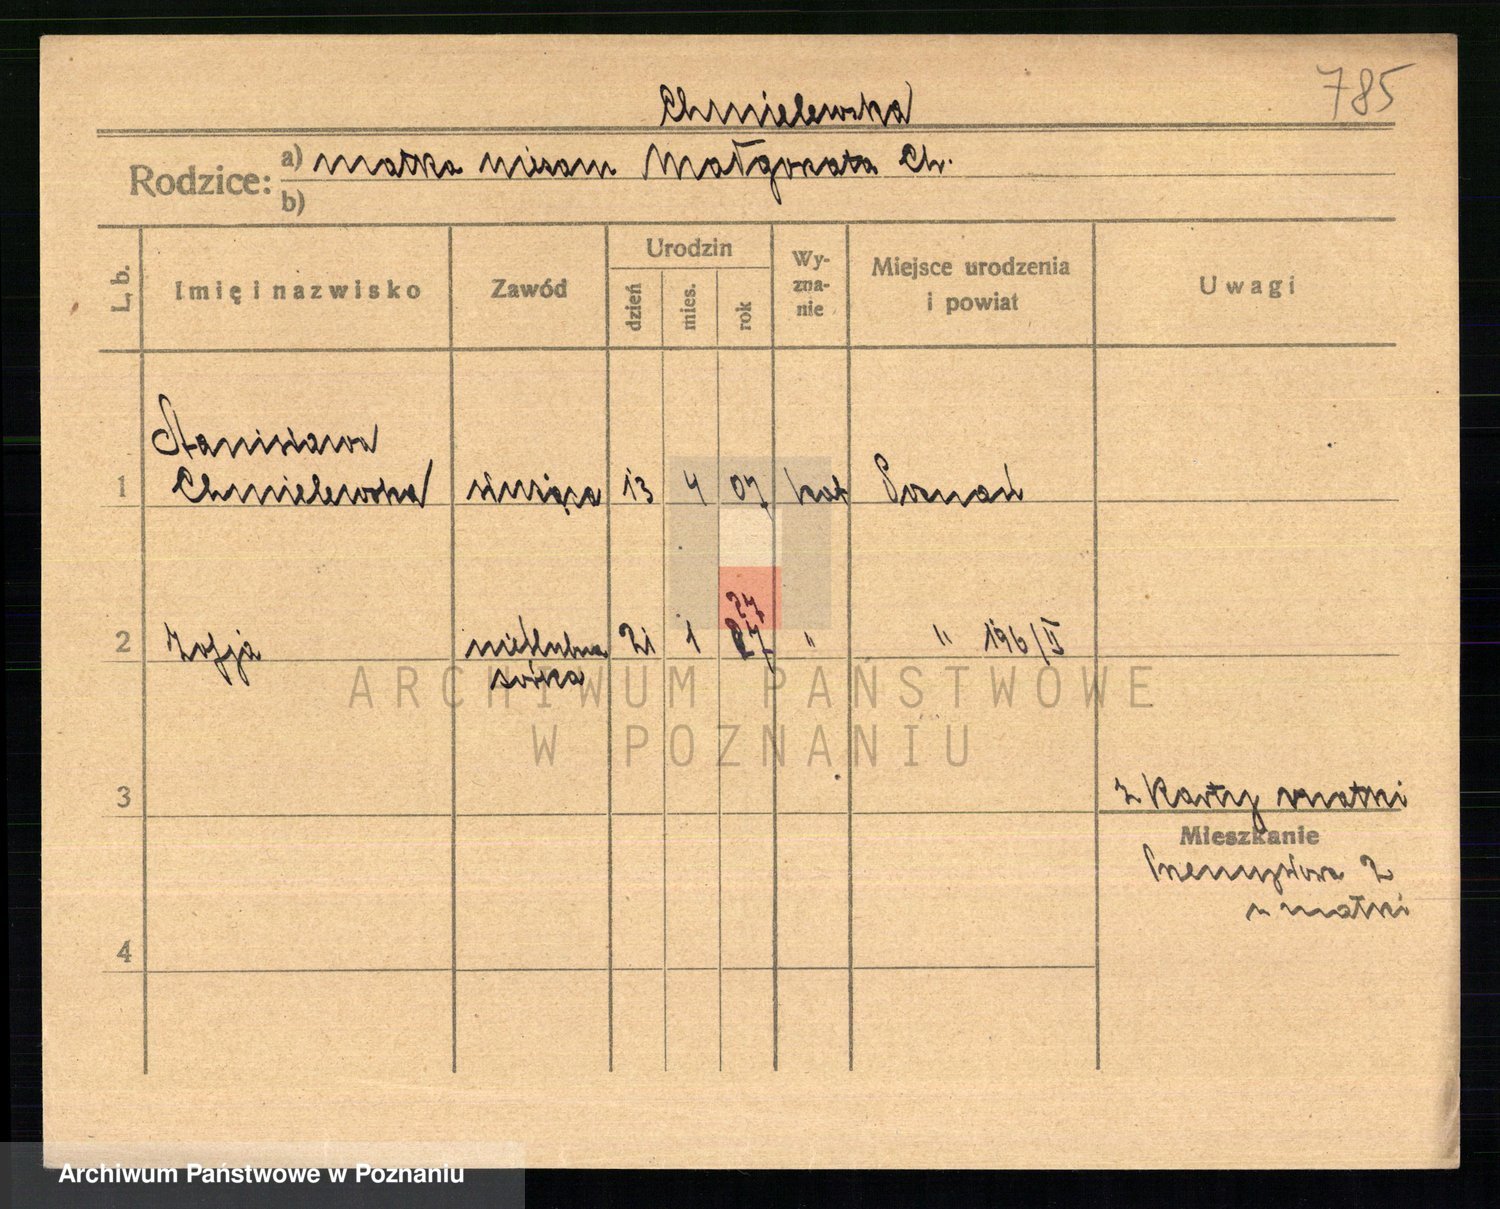 785
Chmielewska
Rodzice: a) matka niezam Małgorzata Ch.
b)
L. b. Imię i nazwisko Zawód Urodzin dzień mies. rok Wy-zna-nie Miejsce urodzenia i powiat Uwagi
Stanisława
1 Chmielewska służąca 13 4 07 kat Poznań
27
2 Zofja nieślubna 21 1 27 " " 196/II
córka
ARCHIWUM PAŃSTWOWE
W POZNANIU
3 z Karty matki
Mieszkanie
Przemysłowa 2
u matki
4
Archiwum Państwowe w Poznaniu